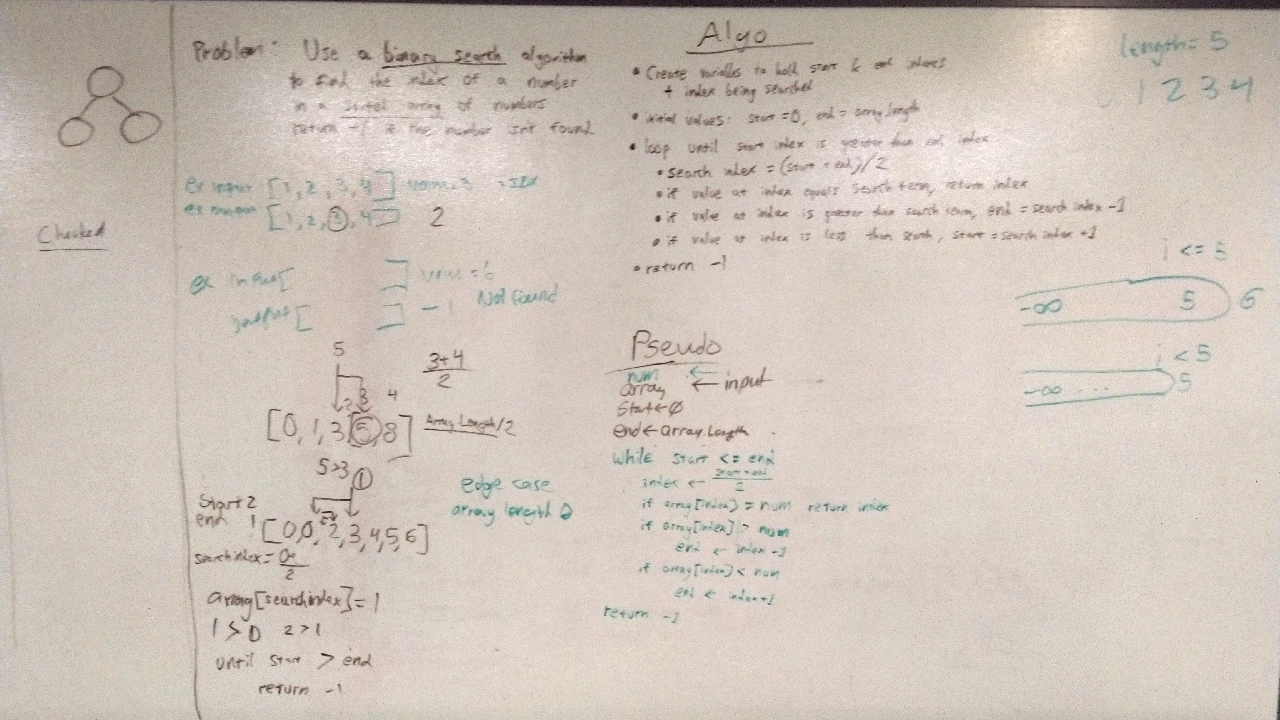 Problem: Use a binary search algorithm
to find the index of a number
in a sorted array of numbers
return -1 if the number isn't found.
ex input [1, 2, 3, 4]
[1, 2, 3, 4] 2
Checked
ex input [ ] value = 6
output [ ] -1 Not found
5
3+4
2
3 4
[0, 1, 3, 5, 8] Array.Length/2
5>3 1
Start 2
end 1 [0,0,2,3,4,5,6]
searchindex =
2
edge case
array length 0
array[searchindex] = 1
1 > 0 2 > 1
until start > end
return -1
Algo
• Create variables to hold start & end indexes
+ index being searched
• initial values: start = 0, end = array length
• loop until start index is greater than end index
• search index = (start + end)/2
• if value at index equals search term, return index
• if value at index is greater than search term, end = search index -1
• if value at index is less than search, start = search index +1
• return -1
Pseudo
num
array ← input
Start ← 0
end ← array.length
while start <= end
index ← start + end
2
if array[index] = num return index
if array[index] > num
end ← index -1
if array[index] < num
end ← index+1
return -1
length = 5
0 1 2 3 4
i <= 5
-∞ 5 6
i < 5
-∞ ... 5